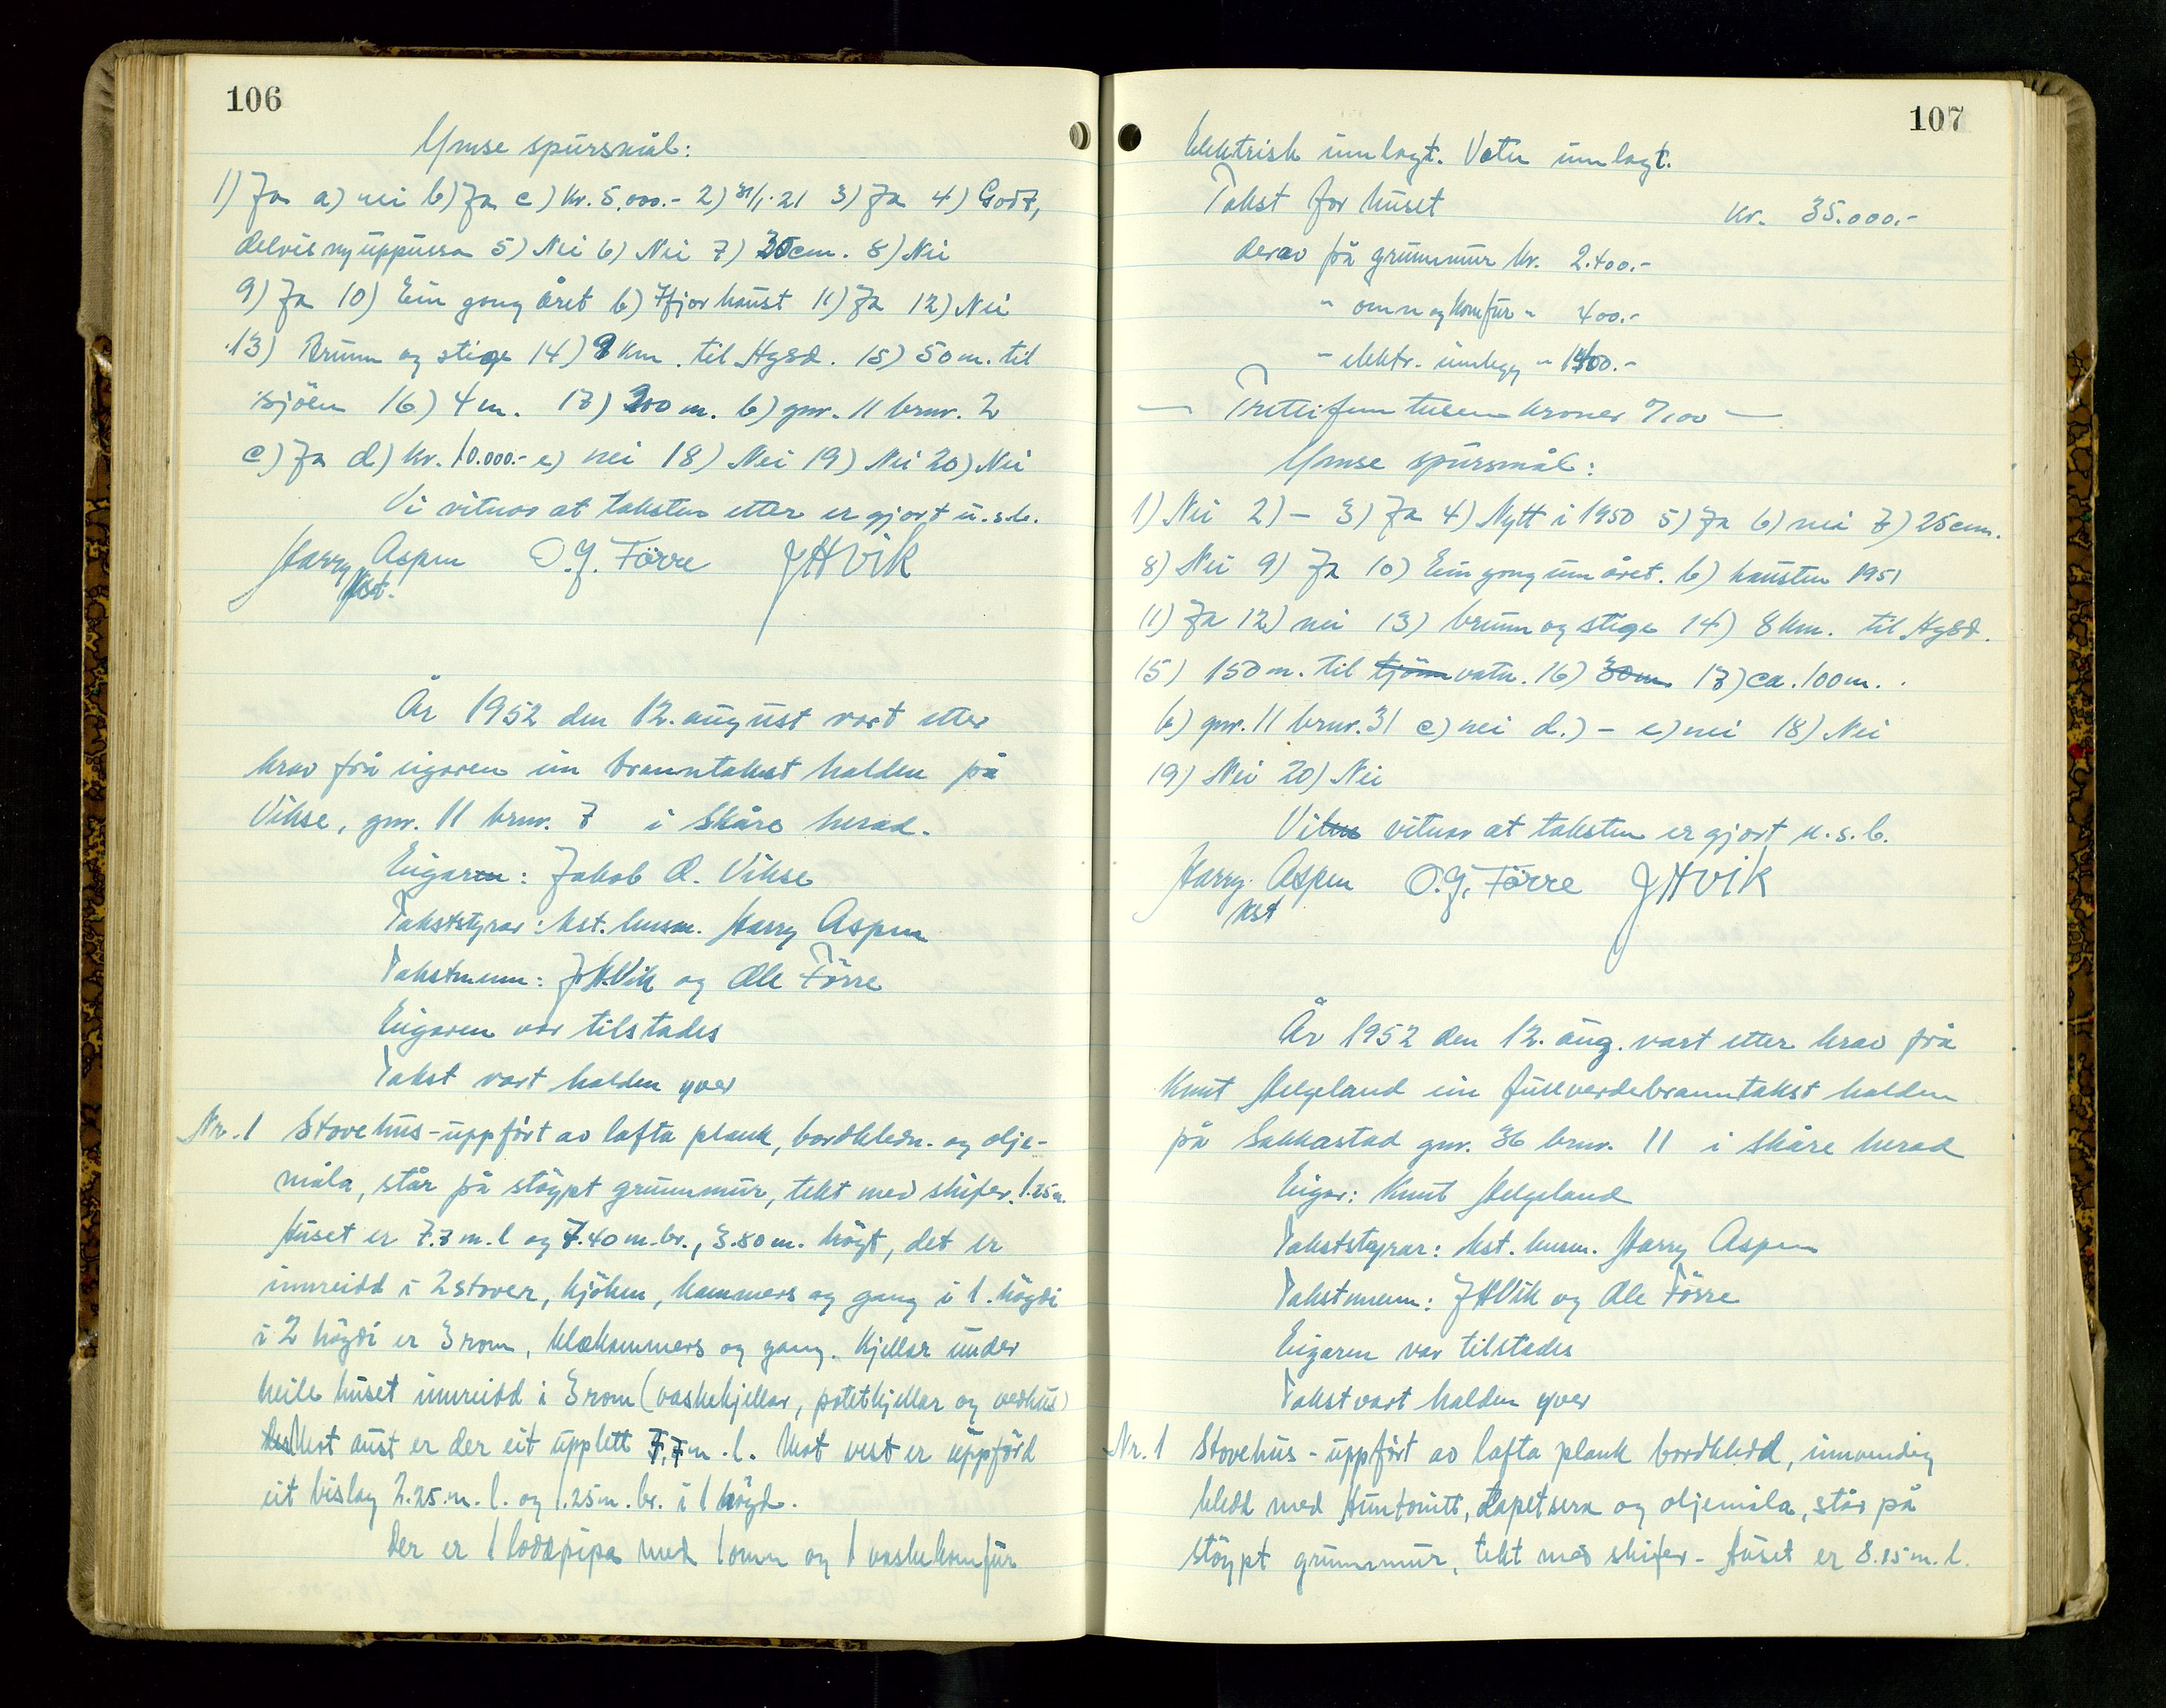 106
Ymse spursmål:
1) Ja a) nei b) Ja c) kr. 5.000.- 2) 31/1-21 3) Ja 4) Godt,
delvis nyuppussa 5) Nei 6) Nei 7) cm. 8) Nei
9) Ja 10) Ein gong året b) Ifjor haust 11) Ja 12) Nei
13) Brunn og stige 14) 9 km. til Hgsd. 15) 50 m. til
sjöen 16) 4 m. 17) 200 m. b) gnr. 11 brnr. 2
c) Ja d) kr. 10.000.- e) nei 18) Nei 19) Nei 20) Nei
Vi vitnar at taksten etter er gjort u.s.b.
Harry Aspen O.G. Förre JHVik
kst.
År 1952 den 12. august vart etter
krav frå eigaren ein branntakst halden på
Vikse, gnr. 11 brnr. 7 i Skåre herad.
Eigaren: Jakob O. Vikse
Takststyrar: kst. lensm. Harry Aspen
Takstmenn: J.H.Vik og Ole Förre
Eigaren var tilstades
Takst vart halden yver
Nr. 1 Stovehus - uppfört av lafta plank, bordkledn. og olje-
måla, står på stöypt grunnmur, tekt med skifer. 1.25 m.
Huset er 7.7 m. l og 7.40 m. br., 3.80 m. högt, det er
innreidd i 2 stover, kjöken, kammers og gang i 1. högdi
i 2 högdi er 3 rom, klekammers og gang. Kjellar under
heile huset innreidd i 3 rom (vaskekjellar, potetkjellar og vedhus)
Mot aust er der eit upplett 7,7 m. l. Mot vest er uppförd
eit bislag 2.25. m. l. og 1.25 m. br. i 1 högd.
Der er 1 loddpipa med 1 omn og 1 vaskekomfür
107
Elektrisk innlagt. Vatn innlagt.
Takst for huset kr. 35.000.-
derav på grunnmur kr. 2.400.-
" omn og komfur " 400.-
" elektr. innlegg " 1400.-
— Trettifem tusen kroner 7/00 —
Ymse spursmål:
1) Nei 2) - 3) Ja 4) Nytt i 1950 5) Ja 6) nei 7) 25 cm.
8) Nei 9) Ja 10) Ein gong um året. b) hausten 1951
11) Ja 12) nei 13) brunn og stige 14) 8 km. til Hgsd.
15) 150 m. til tjönn vatn. 16) 30 m. 17) ca. 100 m.
b) gnr. 11 brnr. 31 c) nei d.) - e) nei 18) Nei
19) Nei 20) Nei
Vi vitnar at taksten er gjort u.s.b.
Harry Aspen O.G. Förre JHVik
kst
År 1952 den 12. aug. vart etter krav frå
Knut Helgeland ein fullverdebranntakst halden
på Sakkastad gnr. 36 brnr. 11 i Skåre herad
Eigar: Knut Helgeland
Takststyrar: kst. lensm. Harry Aspen
Takstmenn: JHVik og Ole Förre
Eigaren var tilstades
Takst vart halden yver
Nr. 1 Stovehus - uppfört av lafta plank bordkledd, innvendig
kledd med Huntonitt, tapetsera og oljemåla, står på
stöypt grunnmur, tekt med skifer - Huset er 8.15 m. l.